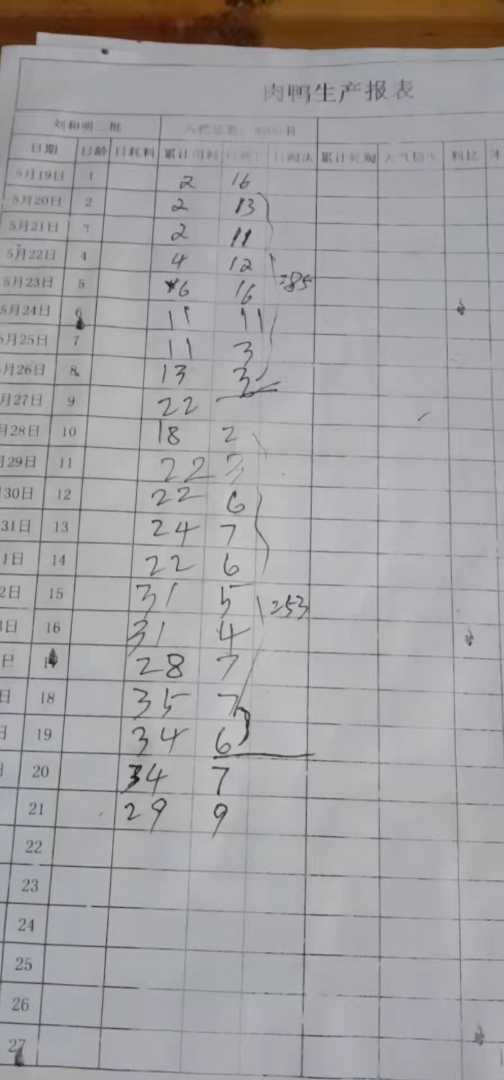 肉鸭生产报表
刘和明二批
日期 日龄 日耗料 累计用料 累计死淘 料比
5月19日 1 2 16
5月20日 2 2 13
5月21日 3 2 11
5月22日 4 4 12
5月23日 5 6 16 285
5月24日 6 11 11
5月25日 7 11 3
5月26日 8 13 3
月27日 9 22
月28日 10 18 2
月29日 11 22 3
30日 12 22 6
31日 13 24 7
1日 14 22 6
2日 15 31 5 253
日 16 31 4
日 28 7
日 18 35 7
日 19 34 6
20 34 7
21 29 9
22
23
24
25
26
27